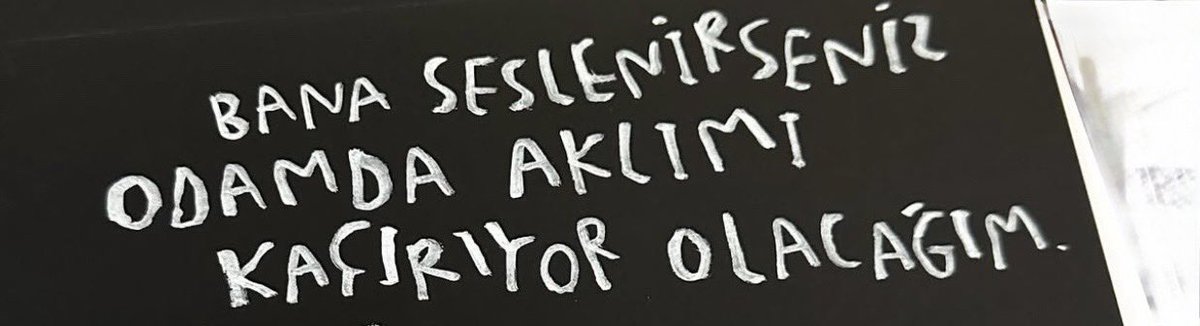 BANA SESLENİRSENİZ
ODAMDA AKLIMI
KAÇIRIYOR OLACAĞIM.